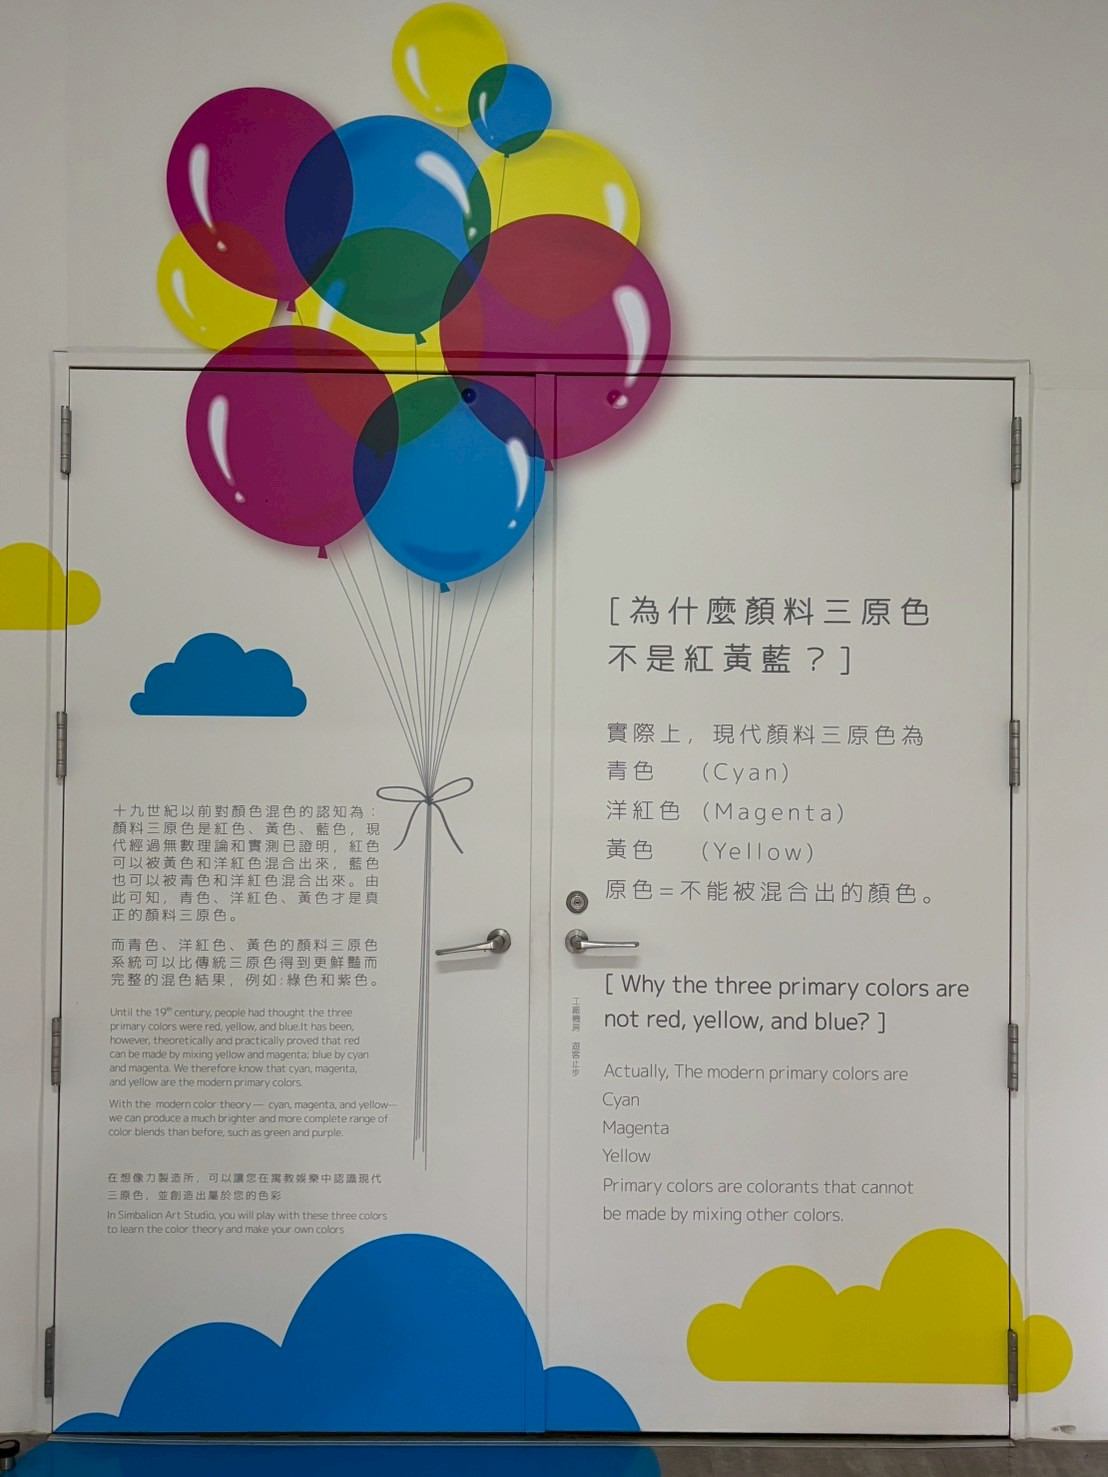 十九世紀以前對顏色混色的認知為：
顏料三原色是紅色、黃色、藍色，現
代經過無數理論和實測已證明，紅色
可以被黃色和洋紅色混合出來，藍色
也可以被青色和洋紅色混合出來。由
此可知，青色、洋紅色、黃色才是真
正的顏料三原色。
而青色、洋紅色、黃色的顏料三原色
系統可以比傳統三原色得到更鮮豔而
完整的混色結果，例如:綠色和紫色。
Until the 19th century, people had thought the three
primary colors were red, yellow, and blue.It has been,
however, theoretically and practically proved that red
can be made by mixing yellow and magenta; blue by cyan
and magenta. We therefore know that cyan, magenta,
and yellow are the modern primary colors.
With the modern color theory— cyan, magenta, and yellow—
we can produce a much brighter and more complete range of
color blends than before, such as green and purple.
在想像力製造所，可以讓您在寓教娛樂中認識現代
三原色，並創造出屬於您的色彩
In Simbalion Art Studio, you will play with these three colors
to learn the color theory and make your own colors
[為什麼顏料三原色
不是紅黃藍？]
實際上，現代顏料三原色為
青色 (Cyan)
洋紅色 (Magenta)
黃色 (Yellow)
原色=不能被混合出的顏色。
[ Why the three primary colors are
not red, yellow, and blue? ]
Actually, The modern primary colors are
Cyan
Magenta
Yellow
Primary colors are colorants that cannot
be made by mixing other colors.
工廠機房 遊客止步